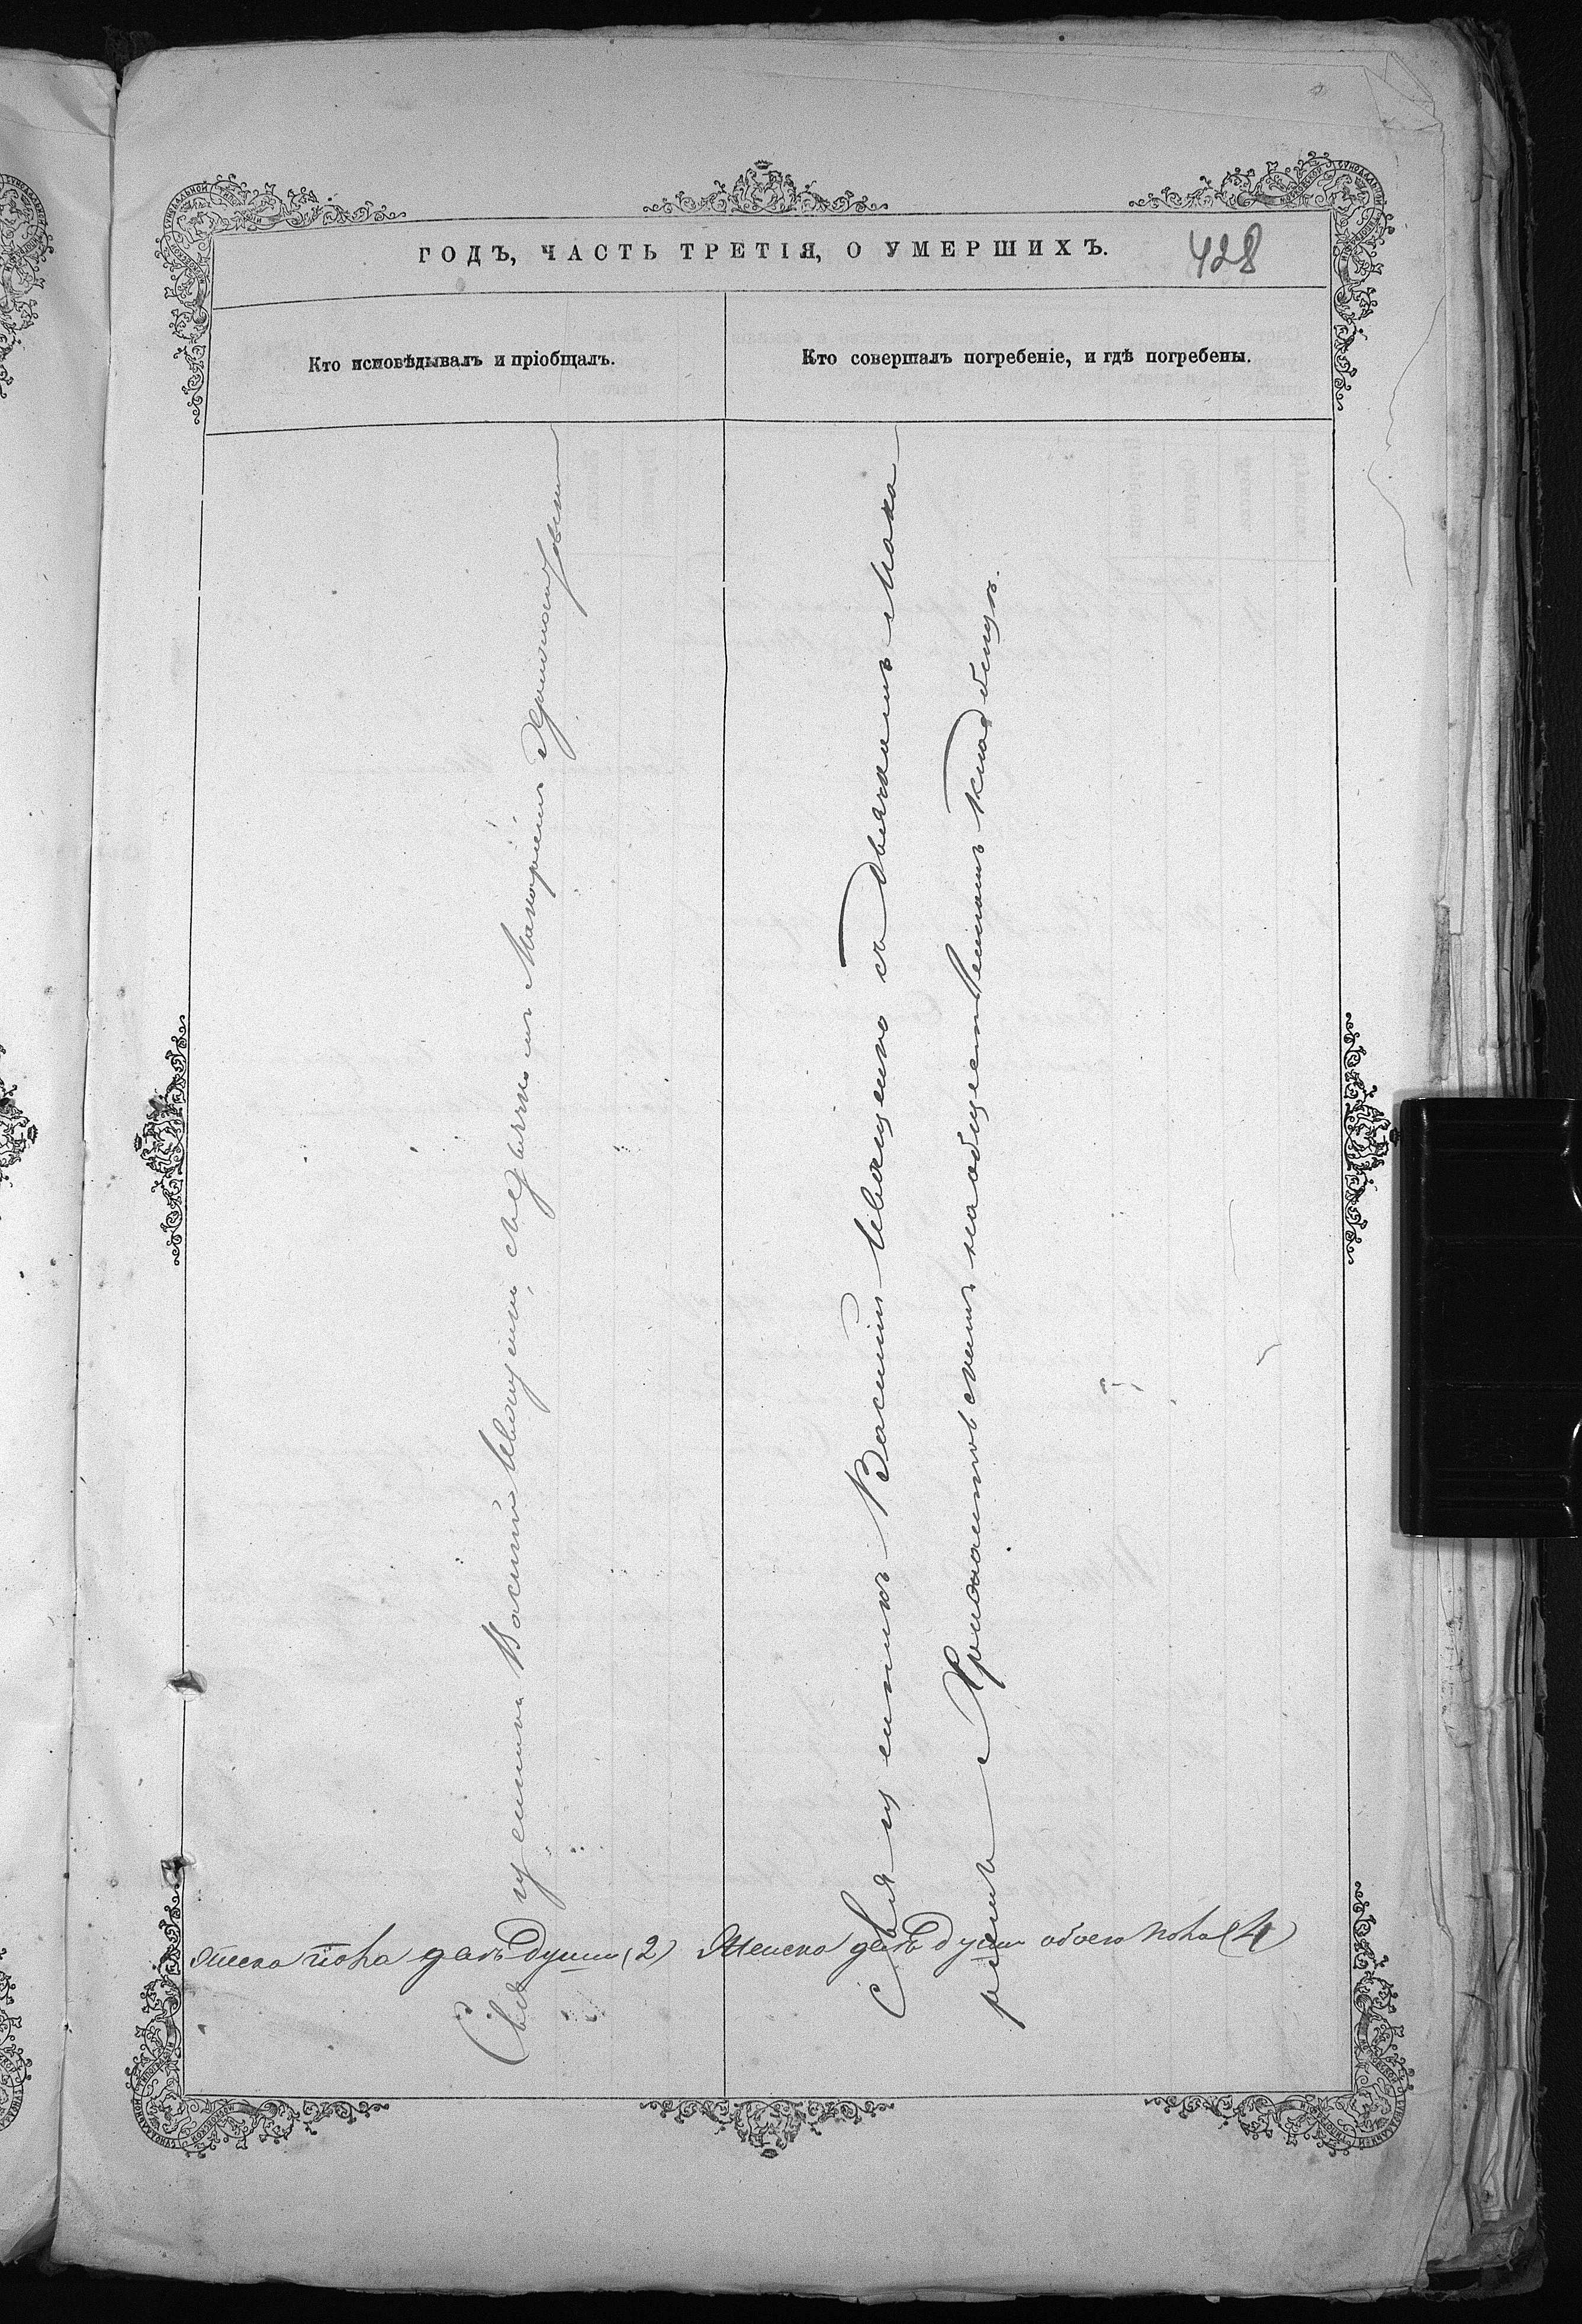 ГОДЪ, ЧАСТЬ ТРЕТІЯ, О УМЕРШИХЪ.
428
Кто исповѣдывалъ и пріобщалъ.
Кто совершалъ погребеніе, и гдѣ погребены.
Священникъ Василій Иващенко, съ Дьячкомъ Макаріемъ
Священникъ Василій Иващенко съ Дьячкомъ Мака
ріемъ на общественномъ кладбищѣ.
пола двѣ души (2) Женска двѣ души обоего пола (4)